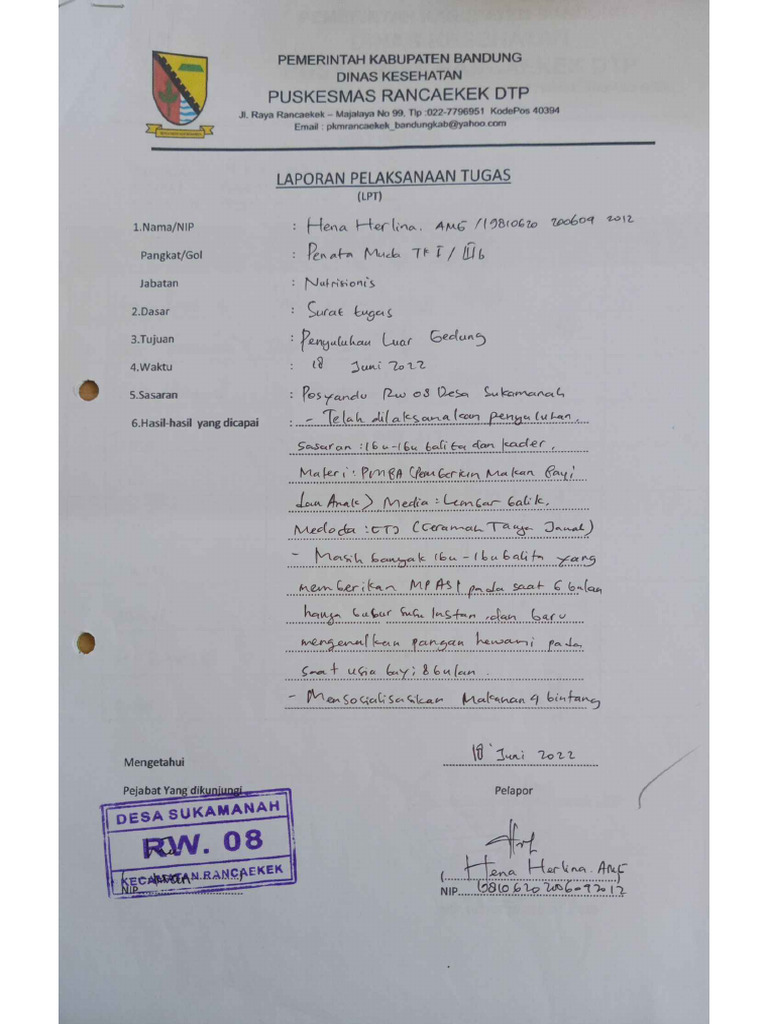 PEMERINTAH KABUPATEN BANDUNG
DINAS KESEHATAN
PUSKESMAS RANCAEKEK DTP
Jl. Raya Rancaekek – Majalaya No 99, Tlp :022-7796951 KodePos 40394
Email : pkmrancaekek_bandungkab@yahoo.com
LAPORAN PELAKSANAAN TUGAS
(LPT)
1.Nama/NIP : Hena Herlina. AMG /19810620 200609 2012
Pangkat/Gol : Penata Muda TK I / III b
Jabatan : Nutrisionis
2.Dasar : Surat tugas
3.Tujuan : Penyuluhan Luar Gedung
4.Waktu : 18 Juni 2022
5.Sasaran : Posyandu Rw 08 Desa Sukamanah
6.Hasil-hasil yang dicapai : - Telah dilaksanakan penyuluhan.
Sasaran : Ibu-Ibu balita dan kader.
Materi : PMBA (Pemberian Makan Bayi
dan Anak) Media : Lembar balik.
Medoda : CTJ (Ceramah Tanya Jawab)
- Masih banyak Ibu-Ibu balita yang
memberikan MPASI pada saat 6 bulan
hanya bubur susu Instan, dan baru
mengenalkan pangan hewani pada
saat usia bayi 8 bulan.
- Mensosialisasikan Makanan 4 bintang
18 Juni 2022
Mengetahui
Pejabat Yang dikunjungi
Pelapor
DESA SUKAMANAH
RW. 08
KECAMATAN RANCAEKEK
NIP
( Hena Herlina. AMG
NIP. 198106202006092012